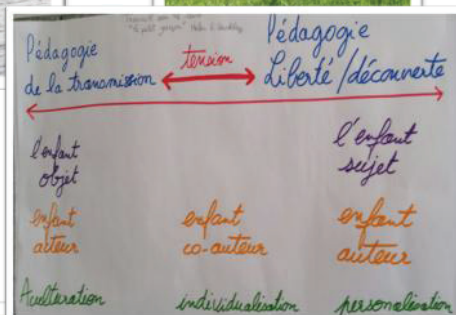 Pédagogie
de la transmission
tension
Pédagogie
Liberté/découverte
l'enfant
objet
l'enfant
sujet
enfant
acteur
enfant
co-auteur
enfant
auteur
Acculturation
individualisation
personalisation